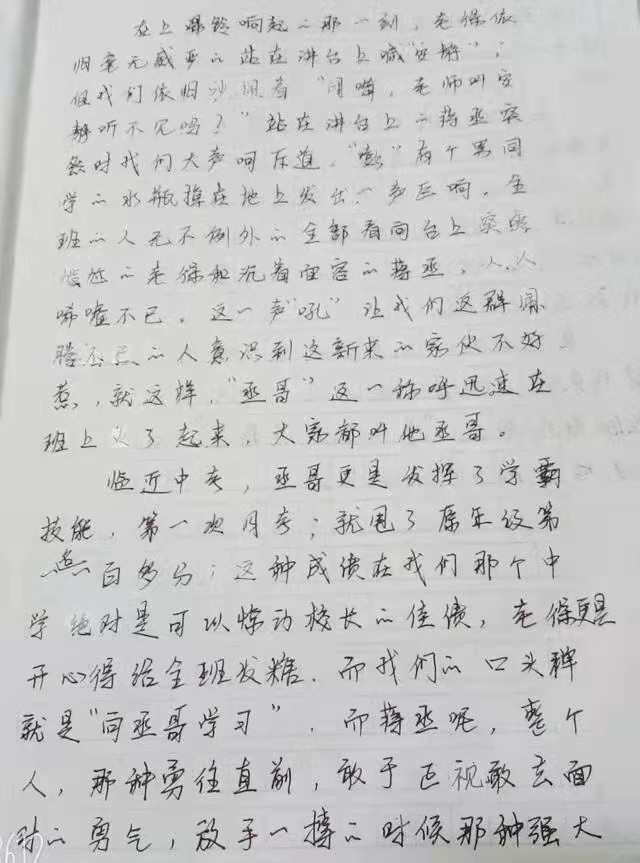 在上课铃响起的那一刻，老保依
旧毫无威严的站在讲台上喊“安静”；
但我们依旧沙佩着“闭嘴，老师叫安
静听不见吗？”站在讲台上的蒋丞突
然对我们大声呵斥道，“嘭”有个男同
学的水瓶掉在地上发出一声巨响，全
班的人无不例外的全部看向台上
尴尬的老保和沉着面容的蒋丞，人人
唏嘘不已，这一声“吼”让我们这群闹
腾不已的人意识到这新来的家伙不好
惹，就这样，“丞哥”这一称呼迅速在
班上火了起来，大家都叫他丞哥。
临近中考，丞哥更是发挥了学霸
技能，第一次月考；就甩了原年级第
一百多分；这种成绩在我们那个中
学绝对是可以惊动校长的佳绩，老保更是
开心得给全班发糖．而我们的口头禅
就是“向丞哥学习”．而蒋丞呢，整个
人，那种勇往直前，敢于正视敢去面
对的勇气，放手一搏的时候那种强大